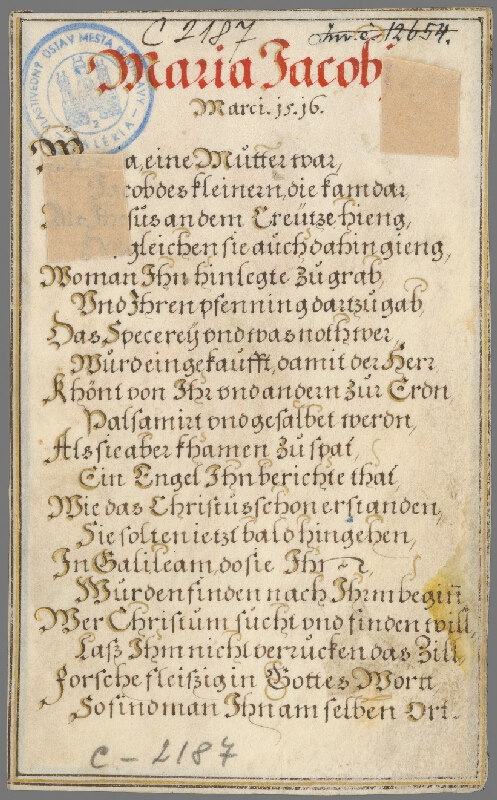 C 2187 Inv. č. 12654.
Maria Jacobi
Marci. 15. 16.
a, eine Mutter war,
Jacob des kleinern, die kam dar,
Als Jhesus an dem Creütze hieng,
gleichen sie auch dahin gieng,
Wo man Ihn hinlegte zu grab,
Vnd Ihren pfenning dartzu gab,
Das Specereÿ vnd was noth wer,
Würd eingekaufft, damit der Herr
Khönt von Ihr vnd andern zur Erdn,
Palsamirt vnd gesalbet werdn,
Als sie aber khamen zu spat,
Ein Engel Ihn berichte that,
Wie das Christus schon erstanden,
Sie solten ietzt bald hingehen,
In Galileam, do sie Ihn,
Würden finden nach Ihrm begiñ
Wer Christum sucht vnd finden will,
Laß Ihm nicht verrucken das Zill,
Forsche fleißig in Gottes Wort,
So find man Ihn am selben Ort.
C - 2187